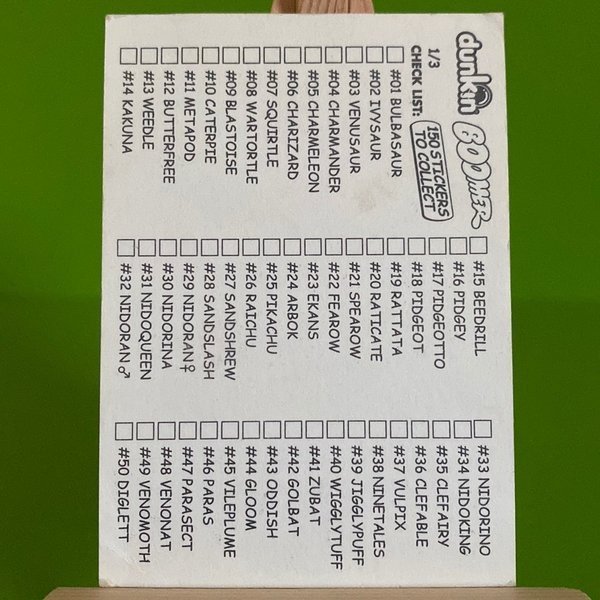 dunkin
BOOMER
1/3
CHECK LIST:
150 STICKERS
TO COLLECT
#01 BULBASAUR
#02 IVYSAUR
#03 VENUSAUR
#04 CHARMANDER
#05 CHARMELEON
#06 CHARIZARD
#07 SQUIRTLE
#08 WARTORTLE
#09 BLASTOISE
#10 CATERPIE
#11 METAPOD
#12 BUTTERFREE
#13 WEEDLE
#14 KAKUNA
#15 BEEDRILL
#16 PIDGEY
#17 PIDGEOTTO
#18 PIDGEOT
#19 RATTATA
#20 RATICATE
#21 SPEAROW
#22 FEAROW
#23 EKANS
#24 ARBOK
#25 PIKACHU
#26 RAICHU
#27 SANDSHREW
#28 SANDSLASH
#29 NIDORAN♀
#30 NIDORINA
#31 NIDOQUEEN
#32 NIDORAN♂
#33 NIDORINO
#34 NIDOKING
#35 CLEFAIRY
#36 CLEFABLE
#37 VULPIX
#38 NINETALES
#39 JIGGLYPUFF
#40 WIGGLYTUFF
#41 ZUBAT
#42 GOLBAT
#43 ODDISH
#44 GLOOM
#45 VILEPLUME
#46 PARAS
#47 PARASECT
#48 VENONAT
#49 VENOMOTH
#50 DIGLETT